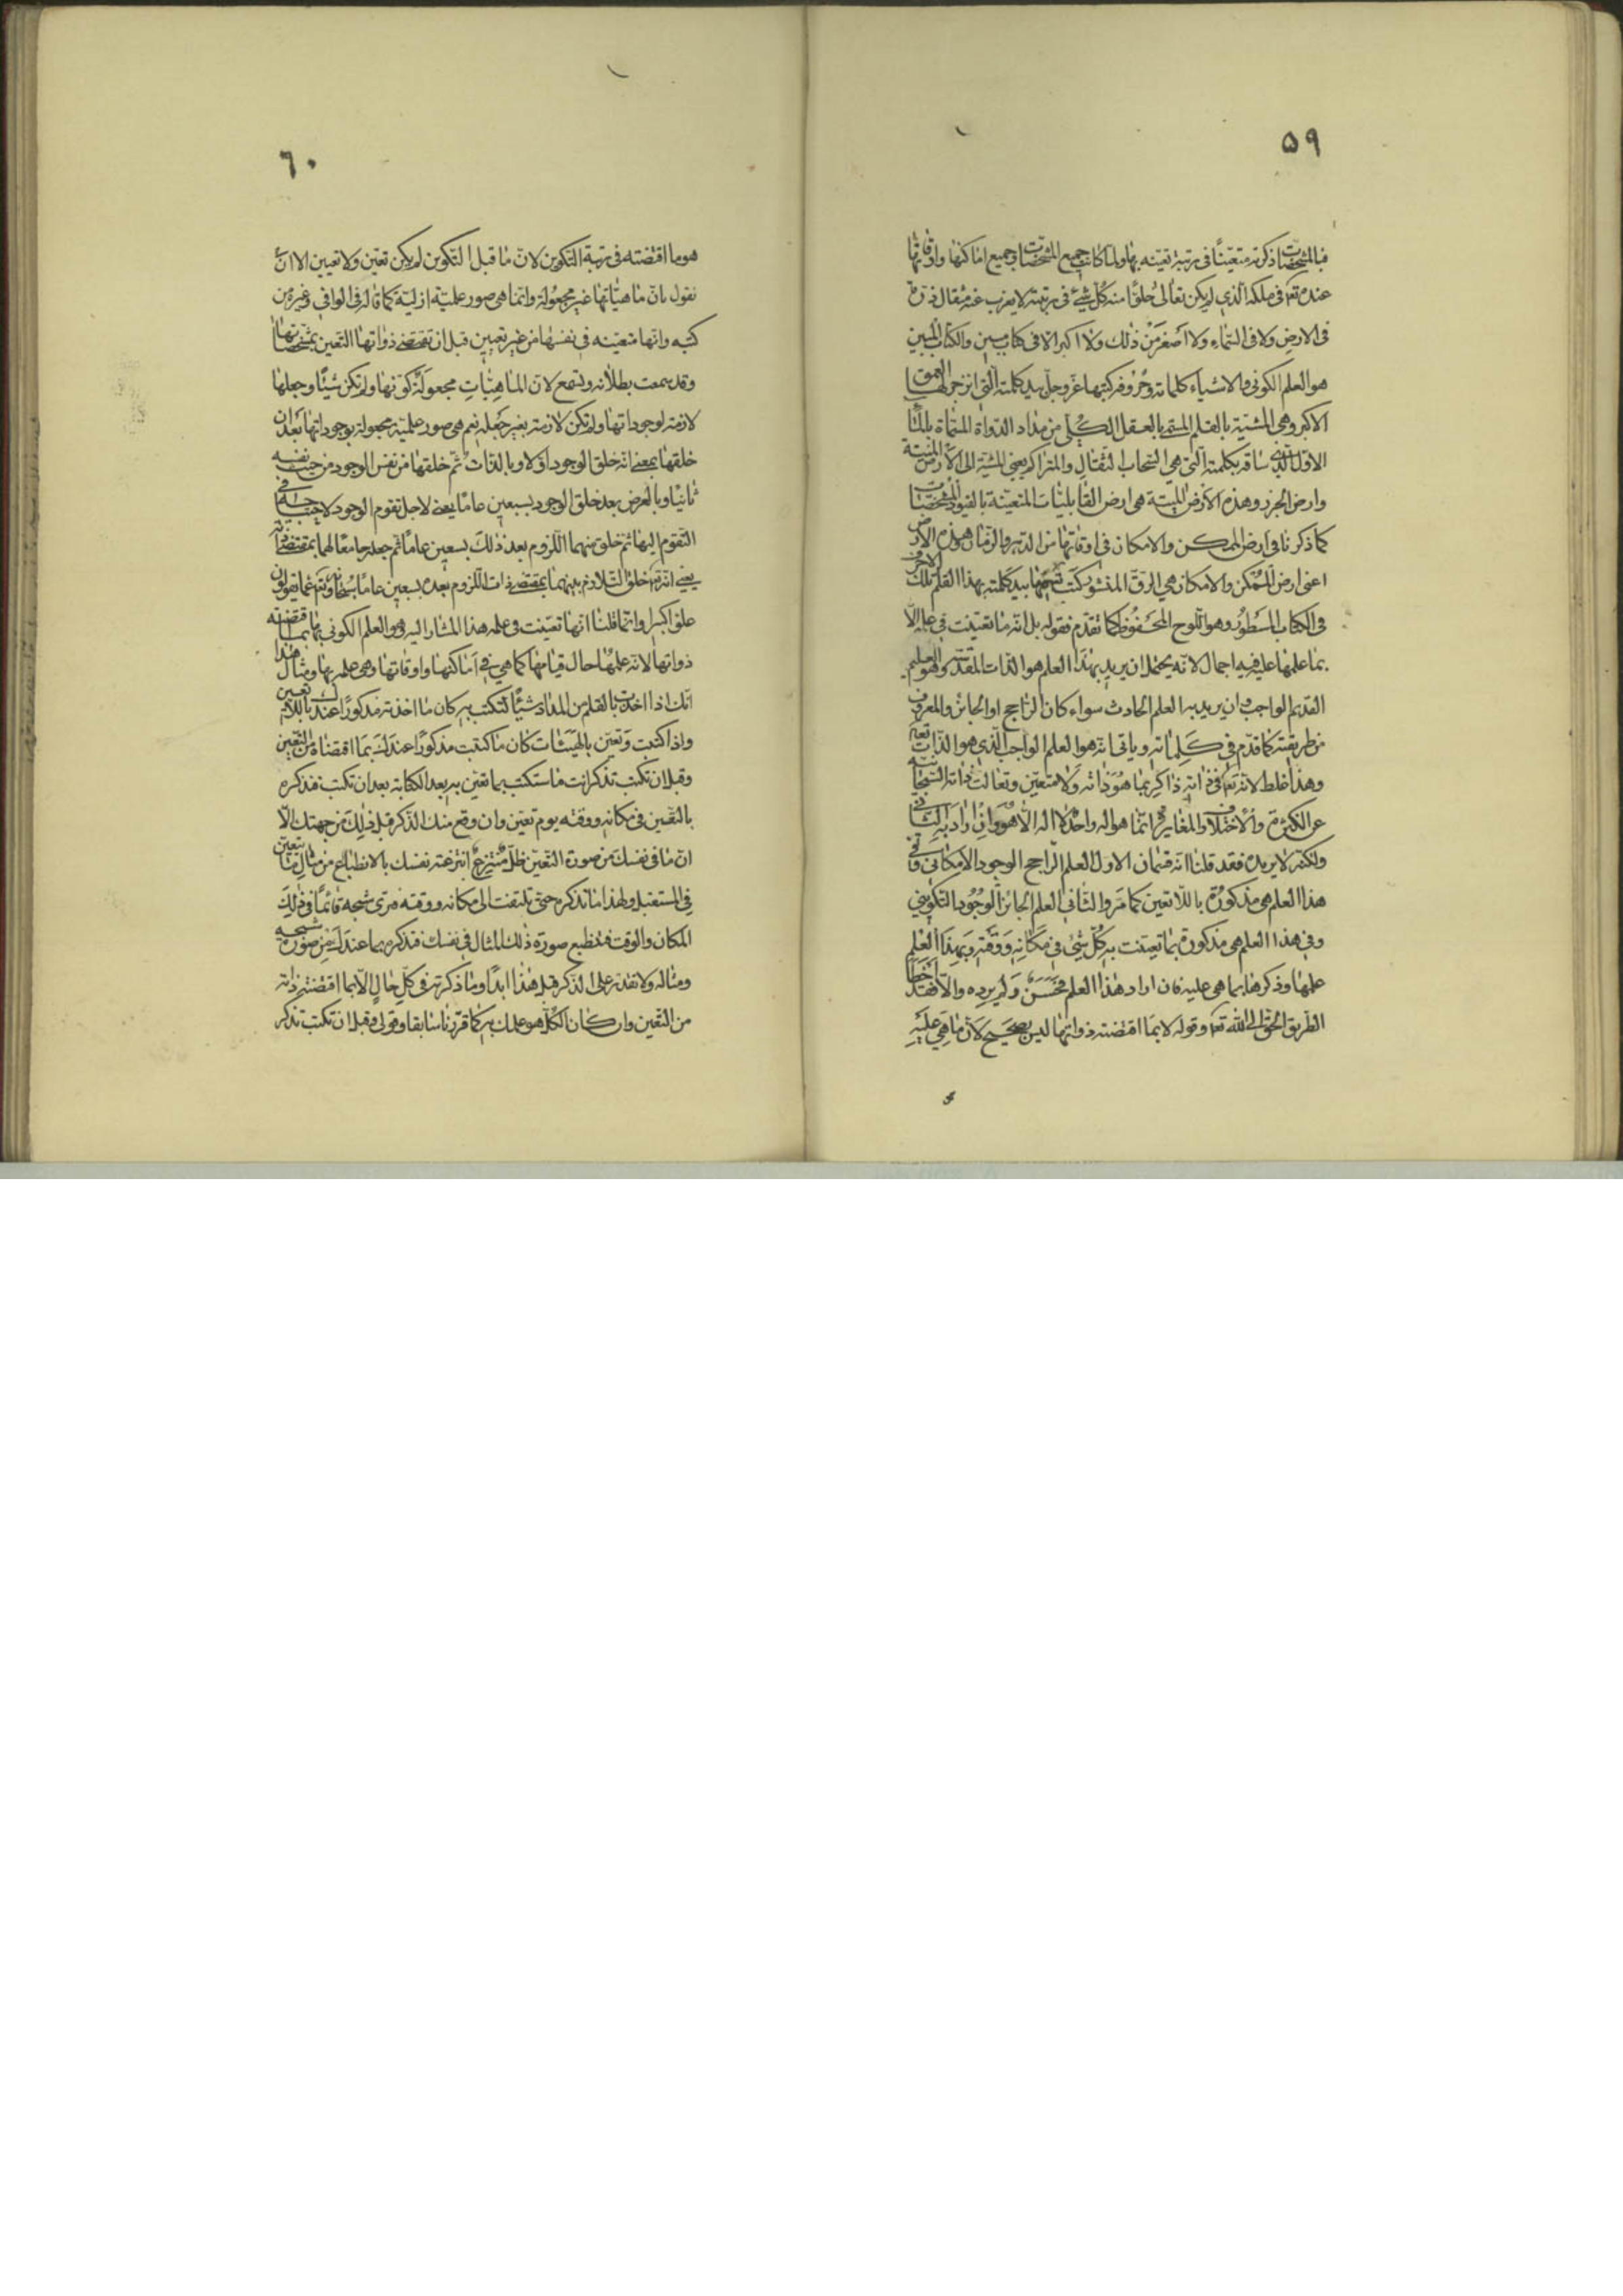 ٥٩
فبالمشخصات ذكرته متعينًا فى رتبة تعينه بها ولما كانت جميع المشخصات فى جميع اماكنها واوقاتها
عنده تع فى ملكه الذى لم يكن تعالى خلوًا منه كل شئ فى رتبته لا يعزب عنه مثقال ذرة
فى الارض ولا فى السّماء ولا اَصْغَر مِنْ ذٰلك ولا اكبر الا فى كتاب مبين والكتاب المبين
هو العلم الكونى والاشياء كلماته وحُرُوفه كتبها عزّ وجلّ بيد كلمته الّتى انزجر لها العمق
الاكبر وهى المشيّة بالقلم المسمى بالعقل الكُلّى من مداد الدواة المسمّاة بالماء
الاوّل الّذى ساقه بكلمته الّتى هى السّحاب الثقال والمتراكم يعنى المشيّة الى الارض الميتة
وارض الجرز وهذه الارض الميتة هى ارض القابليّات المتعيّنة بالقيود المشخصات
كما ذكرنا فى ارض الممكن والامكان فى اوقاتها من الدّهر والزّمان هذه الارض
اعنى ارض الممكن والامكان هى الرّقّ المنشور كتب بيد كلمته بهذا القلم تلك الاحرف
فى الكتاب المسطور وهو اللّوح المحفوظ كما تقدم فقوله بل انّه ما تعيّنت فى علمه الّا
بما علمها عليه فيه اجمال لانّه يحتمل ان يريد بهذا العلم هو الذّات المقدّس وهو العليم
القديم الواجب وان يريد به العلم الحادث سواء كان الرّاجح او الجائز والمعروف
من طريقته كما قدّم فى كلماته وياتى انّه هو العلم الواجب الّذى هو الذّات تع
وهذا غلط لانّه تع فى ذاته ذاكر بما هو ذاته ولا متعيّن وتعالت ذاته السّبحانية
عن الكثرة والاختلاف والمغايرة انّما هو اله واحد لا اله الّا هو وان اراد به الثّانى
ولكنّه لا يريده فقد قلنا انّه قسمان الاوّل العلم الرّاجح الوجود الامكانى وفى
هذا العلم هى مذكورة باللّا تعيّن كما مرّ والثّانى العلم الجائز الوجود التكوينى
وفى هذا العلم هى مذكورة بما تعيّنت به كلّ شئ فى مكانه ووقته وبهذا العلم
علمها وذكرها بما هى عليه فان اراد هذا العلم فحسن ولم يرده والّا فقد اخطأ
الطّريق الحقّ الى الله تع وقوله لا بما اقتضته ذواتها ليس بصحيح لانّ ما هى عليه
٦٠
هو ما اقتضته فى رتبة التكوين لانّ ما قبل التكوين لم يكن تعيّن ولا تعيين الا ان
نقول بانّ ماهيّاتها غير مجعولة وانّما هى صور علميّة ازليّة كما قاله فى الوافى وغيره من
كتبه وانّها متعيّنه فى نفسها من غير تعيين قبل ان تقتضى ذواتها التعين بمشخصاتها
وقد سمعت بطلانه وتسمع لانّ الماهيّات مجعولة كوّنها ولم تكن شيئًا وجعلها
لازمة لوجوداتها ولم تكن لازمة بغير جعله نعم هى صور علميّة مجعولة بوجوداتها بعد ان
خلقها بمعنى انّه خلق الوجود اوّلا وبالذّات ثمّ خلقها من نفس الوجود من حيث نفسه
ثانيًا وبالعرض بعد خلق الوجود بسبعين عامًا يعنى لاجل تقوم الوجود لاحتياجه فى
التقوم اليها ثم خلق منهما اللّزوم بعد ذلك بسبعين عامًا ثم جعله جامعًا لهما بمقتضى ذاته
يعنى انّه تع خلق التّلازم بينهما بمقتضى ذات اللّزوم بعده بسبعين عامًا سبحانه وتع عمّا يقولون
علوّا كبيرا وانّما قلنا انّها تعيّنت فى علمه هذا المشار اليه وهو العلم الكونى بما اقتضته
ذواتها لانّه علمها حال قيامها كما هى فى اماكنها واوقاتها وهى علمه بها ومثال هذا
انّك اذا اخذت بالقلم من المداد شيئًا لتكتب به كان ما اخذته مذكورًا عندك باللّا تعيين
واذا كتبت وتعيّن بالهيئات كان ما كتبت مذكورًا عندك بما اقتضاه من التعين
وقبل ان تكتب تذكر انت ما ستكتب بما تعيّن به بعد الكتابة بعد ان تكتب فتذكره
بالتّعين فى مكانه ووقته يوم تعيّن وان وقع منك الذّكر قبل ذلك من جهتك الّا
انّ ما فى نفسك من صورة التعيّن ظلّ منتزع انتزعته نفسك بالانطباع من مثال ما يتعين
فى المستقبل ولهذا ما تذكره حتّى تلتفت الى مكانه ووقته فترى شبحه قائمًا فى ذلك
المكان والوقت فتنطبع صورة ذلك المثال فى نفسك فتذكره بما عندك من صورة شبحه
ومثاله ولا تقدر على الذّكر قبل هذا ابدًا وما ذكرته فى كلّ حال الّا بما اقتضته ذاته
من التّعين وان كان الكلّ هو علمك به كما قرّرنا سابقا وقولى وقبل ان تكتب تذكر